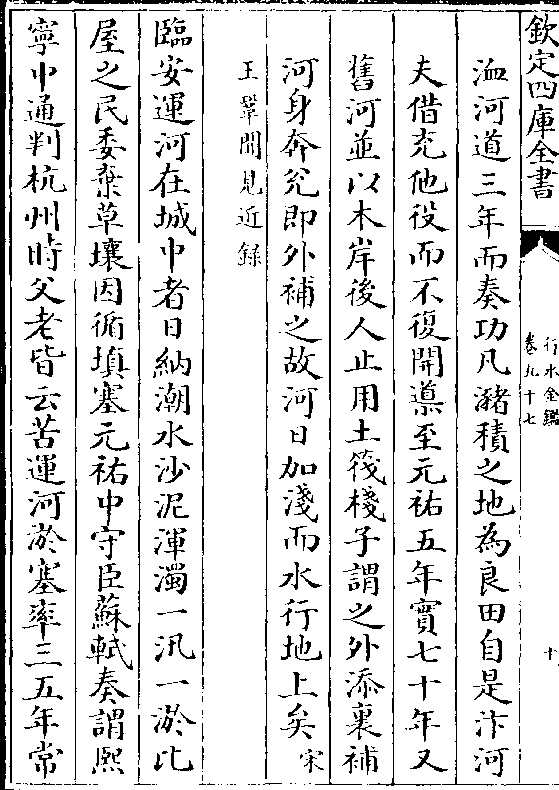 欽定四庫全書
行水金鑑
卷九十七
十
洫河道三年而奏功凡瀦積之地為良田自是汴河
夫借充他役而不復開導至元祐五年實七十年又
舊河並以木岸後人止用土筏棧子謂之外添裏補
河身奔兖即外補之故河日加淺而水行地上矣宋
王鞏聞見近錄
臨安運河在城中者日納潮水沙泥渾濁一汛一淤比
屋之民委棄草壤因循填塞元祐中守臣蘇軾奏謂熙
寧中通判杭州時父老皆云苦運河淤塞率三五年常